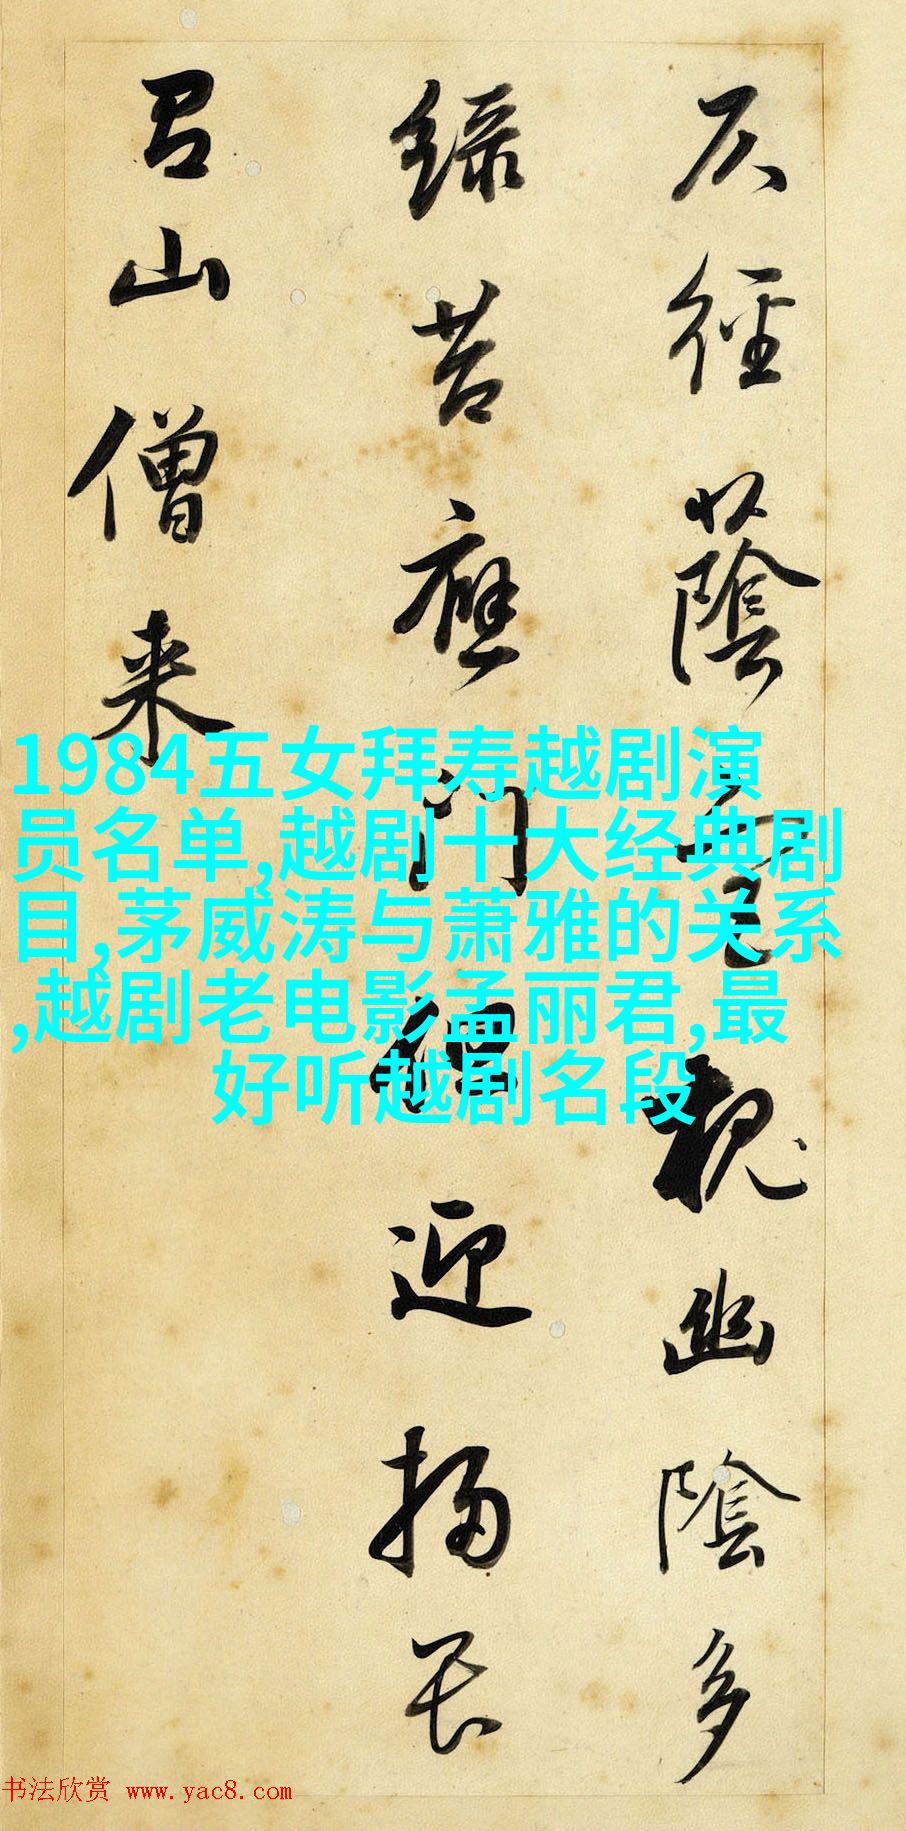 仄徑蔭宮槐幽陰多
綠苔應門但迎掃
山僧来
1984五女拜寿越剧演
员名单,越剧十大经典剧
目,茅威涛与萧雅的关系
,越剧老电影孟丽君,最
好听越剧名段
书法欣赏 www.yac8.com